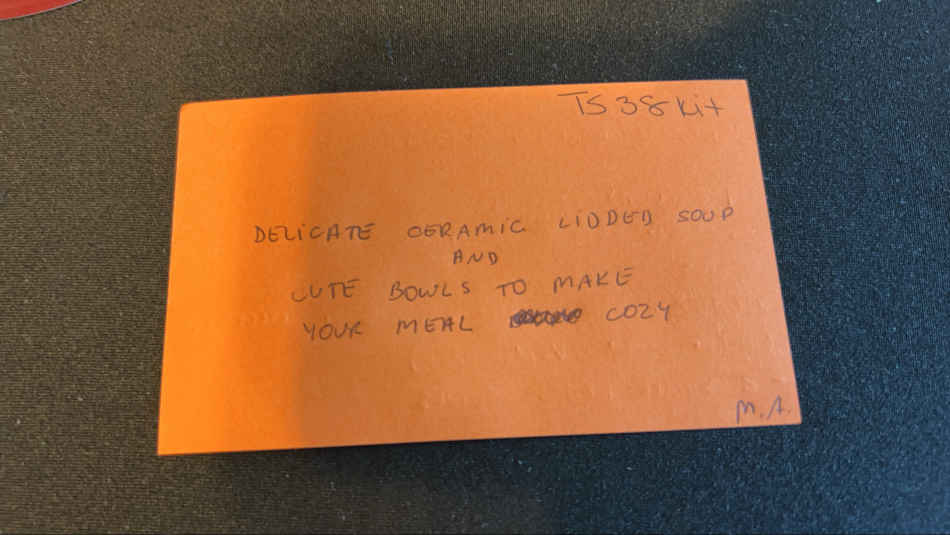 TS 38 Kit
DELICATE CERAMIC LIDDED SOUP
AND
CUTE BOWLS TO MAKE
YOUR MEAL COZY
M.A.